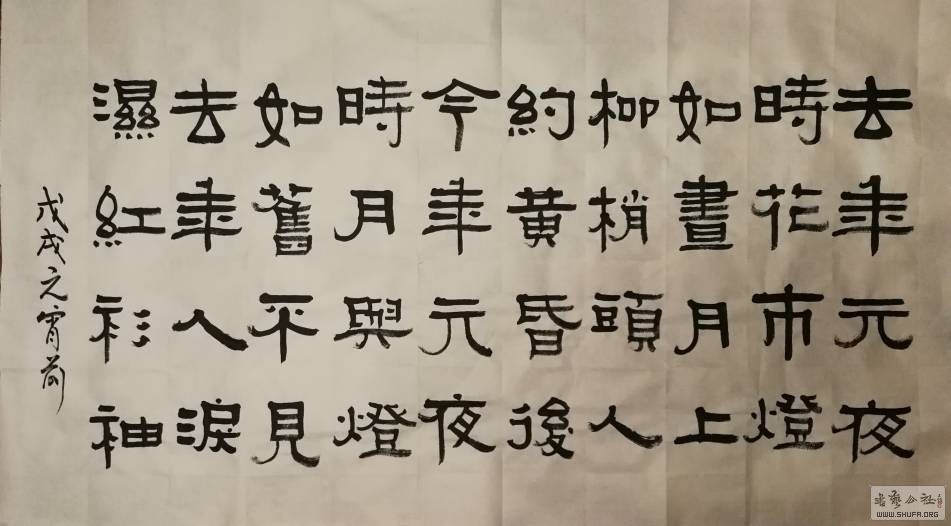 去年元夜
時花市燈
如晝月上
柳梢頭人
約黃昏後
今年元夜
時月與燈
如舊不見
去年人淚
濕紅衫袖
戊戌元宵前
書藝公社
WWW.SHUFA.ORG